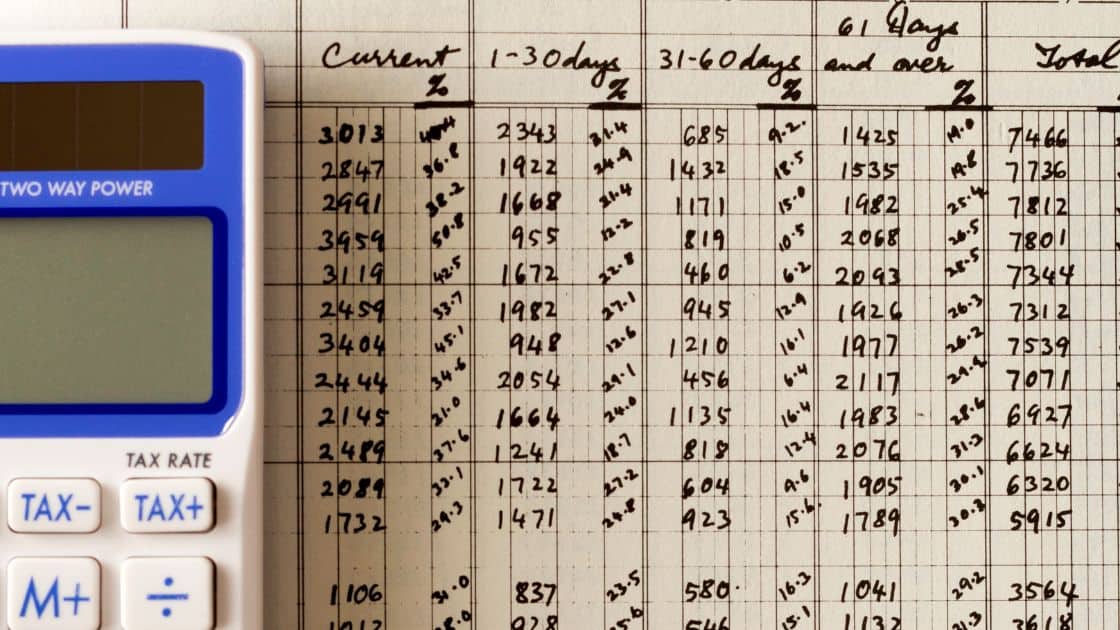 61 Days
Current 1-30 days 31-60 days and over Total
% % % %
3013 2343 31.4 685 9.2 1425 19.0 7466
2847 36.8 1922 24.9 1432 18.5 1535 19.8 7736
2991 38.2 1668 21.4 1171 15.0 1982 25.4 7812
3959 50.8 955 12.2 819 10.5 2068 26.5 7801
3119 42.5 1672 22.8 460 6.2 2093 28.5 7344
2459 33.7 1982 27.1 945 12.9 1926 26.3 7312
3404 45.1 948 12.6 1210 16.1 1977 26.2 7539
2444 34.6 2054 29.1 456 6.4 2117 29.9 7071
2145 31.0 1664 24.0 1135 16.4 1983 28.6 6927
2489 37.6 1241 18.7 818 12.4 2076 31.3 6624
2089 33.1 1722 27.2 604 9.6 1905 30.1 6320
1732 29.3 1471 24.8 923 15.6 1789 30.3 5915
1106 31.0 837 23.5 580 16.3 1041 29.2 3564
15.1
TWO WAY POWER
TAX RATE
TAX- TAX+
M+ ÷